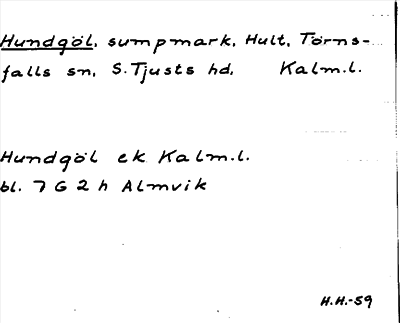 Hundgöl, sumpmark, Hult, Törns-
falls sn, S. Tjusts hd, Kalm.l.
Hundgöl ek Kalm.l.
bl. 7 G 2 h Almvik
H.H.-59